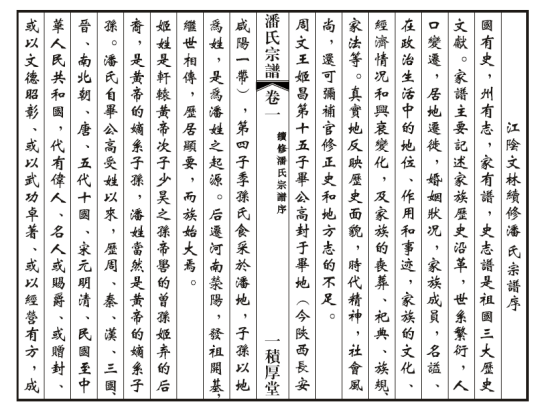 江陰文林續修潘氏宗譜序
國有史，州有志，家有譜，史志譜是祖國三大歷史
文獻。家譜主要記述家族歷史沿革，世系繁衍，人
口變遷，居地遷徙，婚姻狀況，家族成員，名謚、
在政治生活中的地位、作用和事迹，家族的文化、
經濟情况和興衰變化，及家族的喪葬、祀典、族規、
家法等。真實地反映歷史面貌，時代精神，社會風
尚，還可彌補官修正史和地方志的不足。
周文王姬昌第十五子畢公高封于畢地（今陝西長安
潘氏宗譜
卷一
續修潘氏宗譜序
一
積厚堂
咸陽一帶），第四子季孫氏食采於潘地，子孫以地
爲姓，是爲潘姓之起源。后遷河南滎陽，發祖開基，
繼世相傳，歷居顯要，而族始大焉。
姬姓是軒轅黃帝次子少昊之孫帝嚳的曾孫姬弃的后
裔，是黃帝的嫡系子孫，潘姓當然是黃帝的嫡系子
孫。潘氏自畢公高受姓以來，歷周、秦、漢、三國、
晉、南北朝、唐、五代十國、宋元明清、民國至中
華人民共和國，代有偉人、名人或賜爵、或贈封、
或以文德昭彰、或以武功卓著、或以經營有方，成